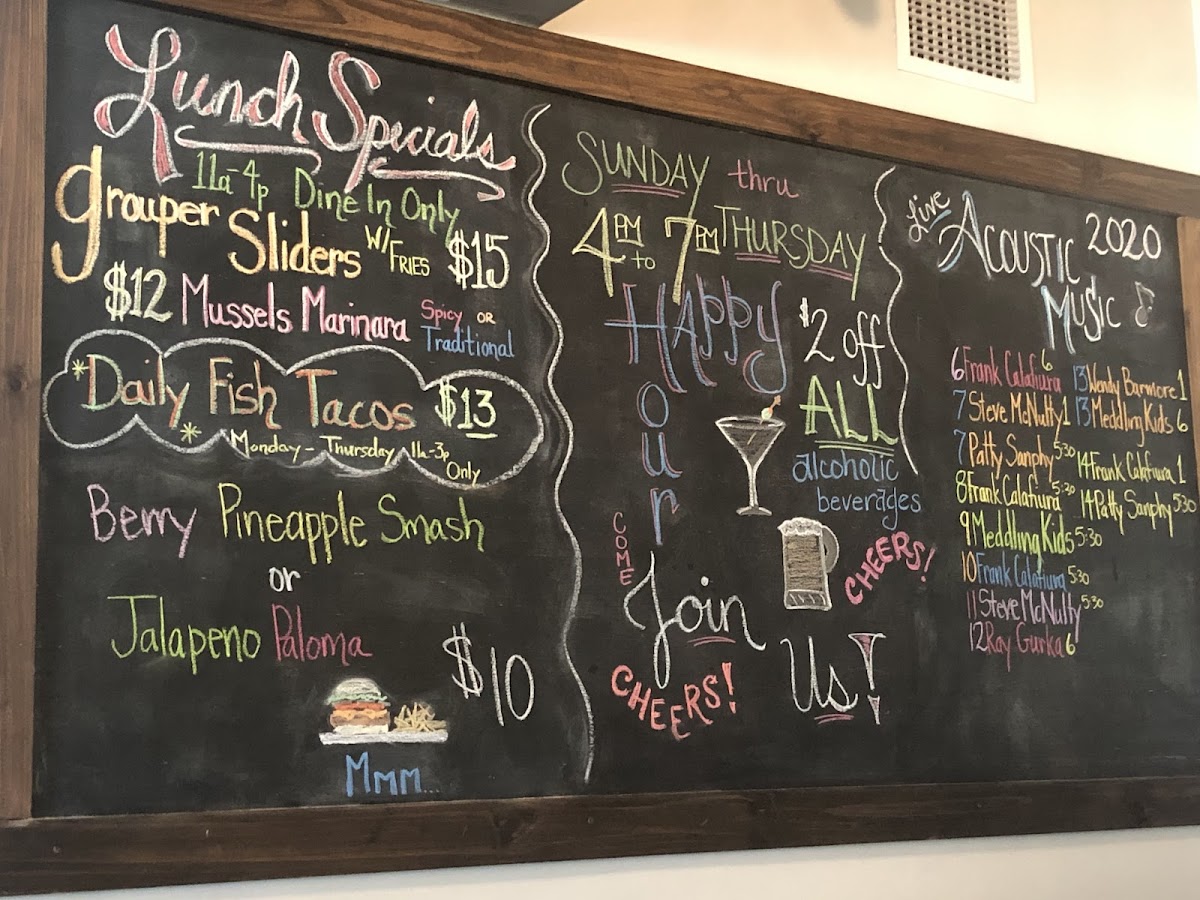 Lunch Specials
11a-4p Dine In Only
grouper Sliders W/FRIES $15
$12 Mussels Marinara Spicy OR Traditional
*Daily Fish Tacos $13
* Monday - Thursday 11a-3p Only
Berry Pineapple Smash
or
Jalapeno Paloma
$10
Mmm...
SUNDAY thru
4PM to 7PM THURSDAY
Happy
Hour
$2 off
ALL
alcoholic
beverages
COME
Join
Us!
CHEERS!
CHEERS!
Live Acoustic Music 2020
6 Frank Calafiura 6
7 Steve McNulty 1
7 Patty Sanphy 5:30
8 Frank Calafiura 5:30
9 Meddling Kids 5:30
10 Frank Calafiura 5:30
11 Steve McNulty 5:30
12 Ray Gurka 6
13 Wendy Barmore 1
13 Meddling Kids 6
14 Frank Calafiura 1
14 Patty Sanphy 5:30